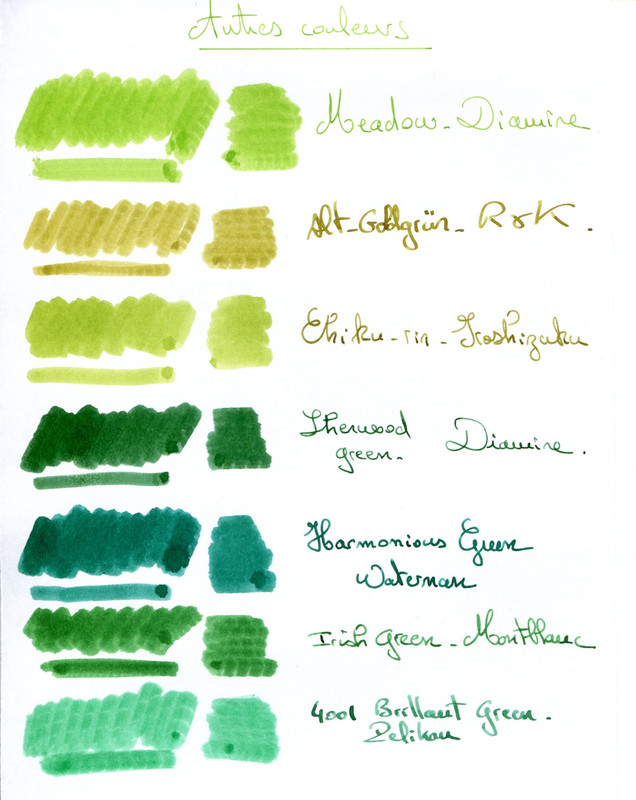 Autres couleurs
Meadow - Diamine
Alt-Goldgrün - R&K.
Chiku-rin - Iroshizuku
Sherwood Diamine.
green -
Harmonious Green
Waterman
Irish Green - Montblanc
4001 Brillant Green.
Pelikan